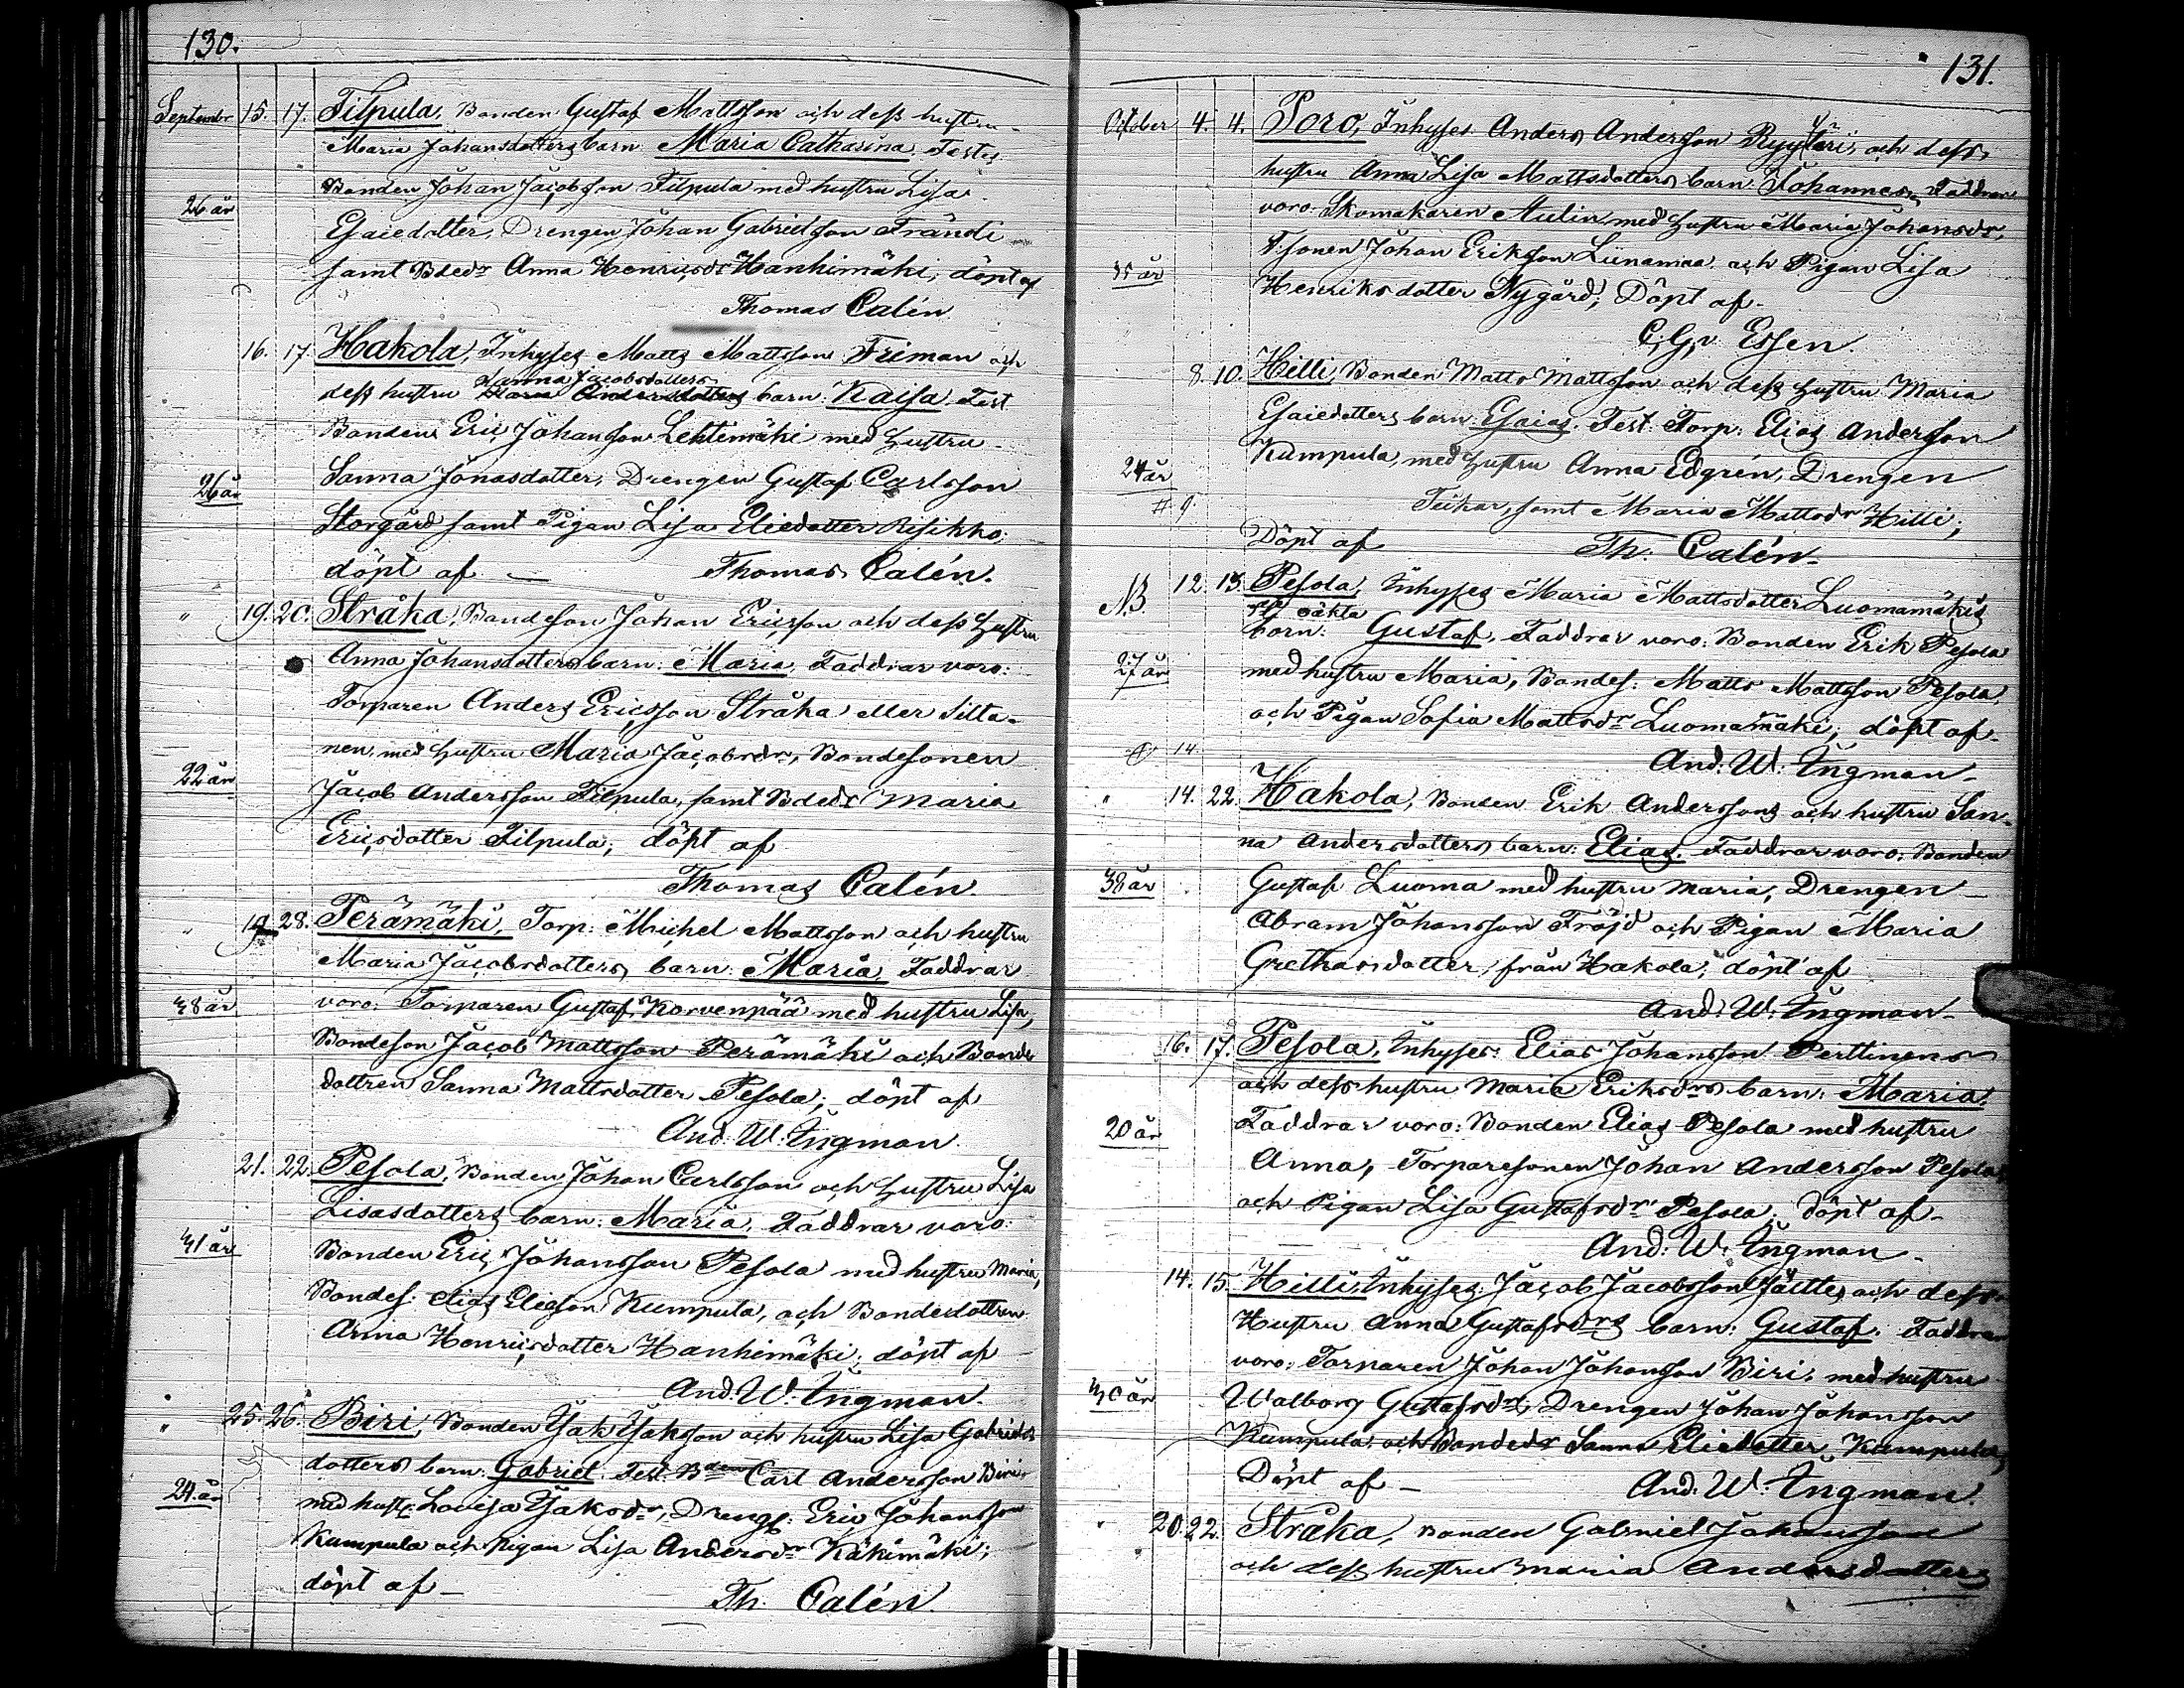 130.
September 15. 17. Filpula, Bonden Gustaf Mattsson och dess hustru
Maria Johansdotters barn Maria Catharina. Testes
Bonden Johan Jacobsson Filpula med hustru Lisa
26 år
Esaiedotter, Drengen Johan Gabrielsson Frändi
samt Bdedr Anna Henricsdr Hanhimäki; döpt af
Thomas Calén
16. 17. Hakola, Inhyses Matts Mattsson Friman och
Sanna Jacobsdotters
dess hustru barn: Kaisa. Test
Bonden Eric Johansson Lehtimäki med hustru
Sanna Jonasdotter, Drengen Gustaf Carlsson
26 år
Storgård samt Pigan Lisa Eliedotter Risikko;
döpt af — Thomas Calén.
" 19. 20. Stråka, Bondeson Johan Ericsson och dess hustru
Anna Johansdotters barn: Maria. Faddrar voro:
Torparen Anders Ericsson Stråka eller Silta-
nen med hustru Maria Jacobsdr, Bondesonen
22 år
Jacob Andersson Filpula, samt Bdedr Maria
Ericsdotter Filpula; döpt af
Thomas Calén.
" 19. 28. Perämäki, Torp: Michel Mattsson och hustru
Maria Jacobsdotters barn: Maria. Faddrar
38 år
voro: Torparen Gustaf Korvenpää med hustru Lisa,
Bondeson Jacob Mattsson Perämäki och Bonde
dottren Sanna Mattsdotter Pesola; döpt af
And. W. Ingman.
21. 22. Pesola, Bonden Johan Carlsson och hustru Lisa
Lisasdotters barn: Maria. Faddrar voro:
41 år
Bonden Eric Johansson Pesola med hustru Maria,
Bondes: Elias Eliesson Kumpula, och Bondedottren
Anna Henricsdotter Hanhimäki; döpt af
And. W. Ingman.
" 25. 26. Biri, Bonden Isak Isaksson och hustru Lisa Gabriels
dotters barn: Gabriel. Test. Bden Carl Andersson Biri
24 år
med hust: Lovisa Isaksdr, Drengs: Eric Johansson
Kumpula och Pigan Lisa Andersdr Käkimäki;
döpt af — Th. Calén.
131.
October 4. 4. Poro, Inhyses Anders Andersson Ryytäri, och dess
hustru Anna Lisa Mattsdotters barn: Johannes, Faddrar
voro: Skomakaren Aulin med hustru Maria Johansdr,
T:sonen Johan Eriksson Liinamaa och Pigan Lisa
35 år
Henriksdotter Nygård; Döpt af
C. G. v. Essen.
8. 10. Hilli, Bonden Matts Mattsson och dess hustru Maria
Esaiedotters barn: Esaias. Test. Torp: Elias Andersson
Kumpula, med hustru Anna Edgrén, Drengen
24 år
# 9.
samt Maria Mattsdr Hilli;
Döpt af Th: Calén.
NB. 12. 13. Pesola, Inhyses Maria Mattsdotter Luomamäkis
oäkta
barn: Gustaf. Faddrar voro: Bonden Erik Pesola
27 år
med hustru Maria, Bondes: Matts Mattsson Pesola,
och Pigan Sofia Mattsdr Luomamäki; döpt af
14. And: W: Ingman
" 14. 22. Hakola, Bonden Erik Anderssons och hustru San-
na Andersdotters barn: Elias. Faddrar voro: Bonden
38 år
Gustaf Luoma med hustru Maria, Drengen
Abram Johansson Fröjd och Pigan Maria
Grethasdotter från Hakola; döpt af
And. W. Ingman
16. 17. Pesola, Inhyses: Elias Johansson Perttinens
och dess hustru Maria Eriksdrs barn: Maria.
20 år
Faddrar voro: Bonden Elias Pesola med hustru
Anna, Torparesonen Johan Andersson Pesola
och Pigan Lisa Gustafsdr Pesola; döpt af
And: W: Ingman
14. 15. Hilli, Inhyses: Jacob Jacobsson och dess
Hustru Anna Gustafsdrs barn: Gustaf. Faddrar
voro: Torparen Johan Johansson Biri, med hustru
30 år
Walborg Gustafsdr, Drengen Johan Johansson
Kumpula och Bondedr Sanna Eliedotter Kumpula;
Döpt af — And. W. Ingman.
" 20. 22. Stråka, Bonden Gabriel Johansson
och dess hustru Maria Andersdotters